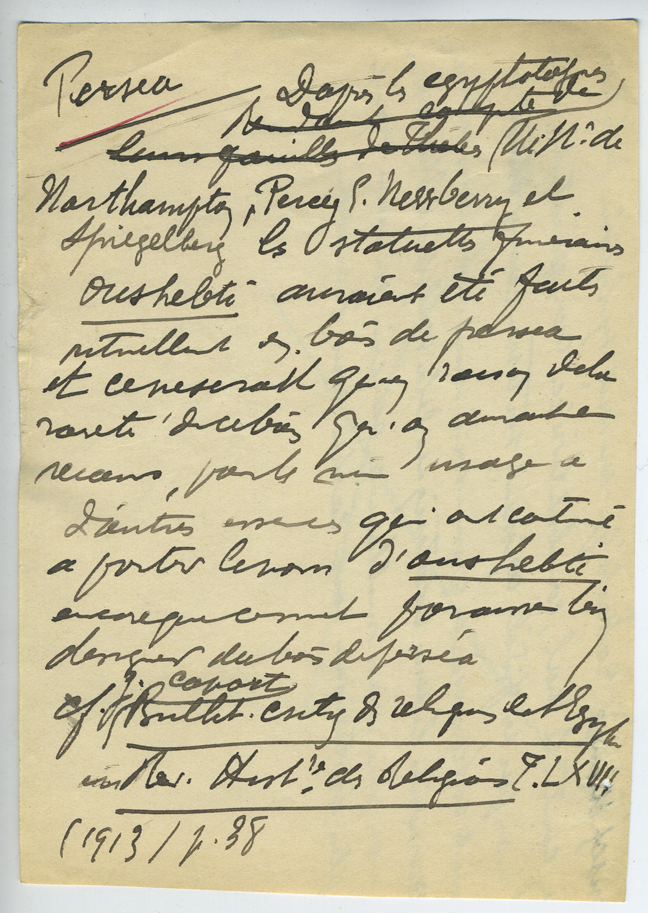 Persea
D'après les égyptologues
rendant compte de
leurs fouilles de Thèbes (M. Nis de
Northampton, Percy E. Newberry et
Spiegelberg les statuettes funéraires
oushebti auraient été faits
rituellement en bois de persea
et ce ne serait qu'en raison de la
rareté de ce bois qu'on aurait eu
recours, pour le même usage a
d'autres essences qui ont continué
a porter le nom d'oushebti
encore que ce mot paraisse bien
designer du bois de perséa
cf. J. Capart
Bullet. crity des religions de l'Egypte
in Rev. Histre des Religions T. LXVII
(1913) p. 38